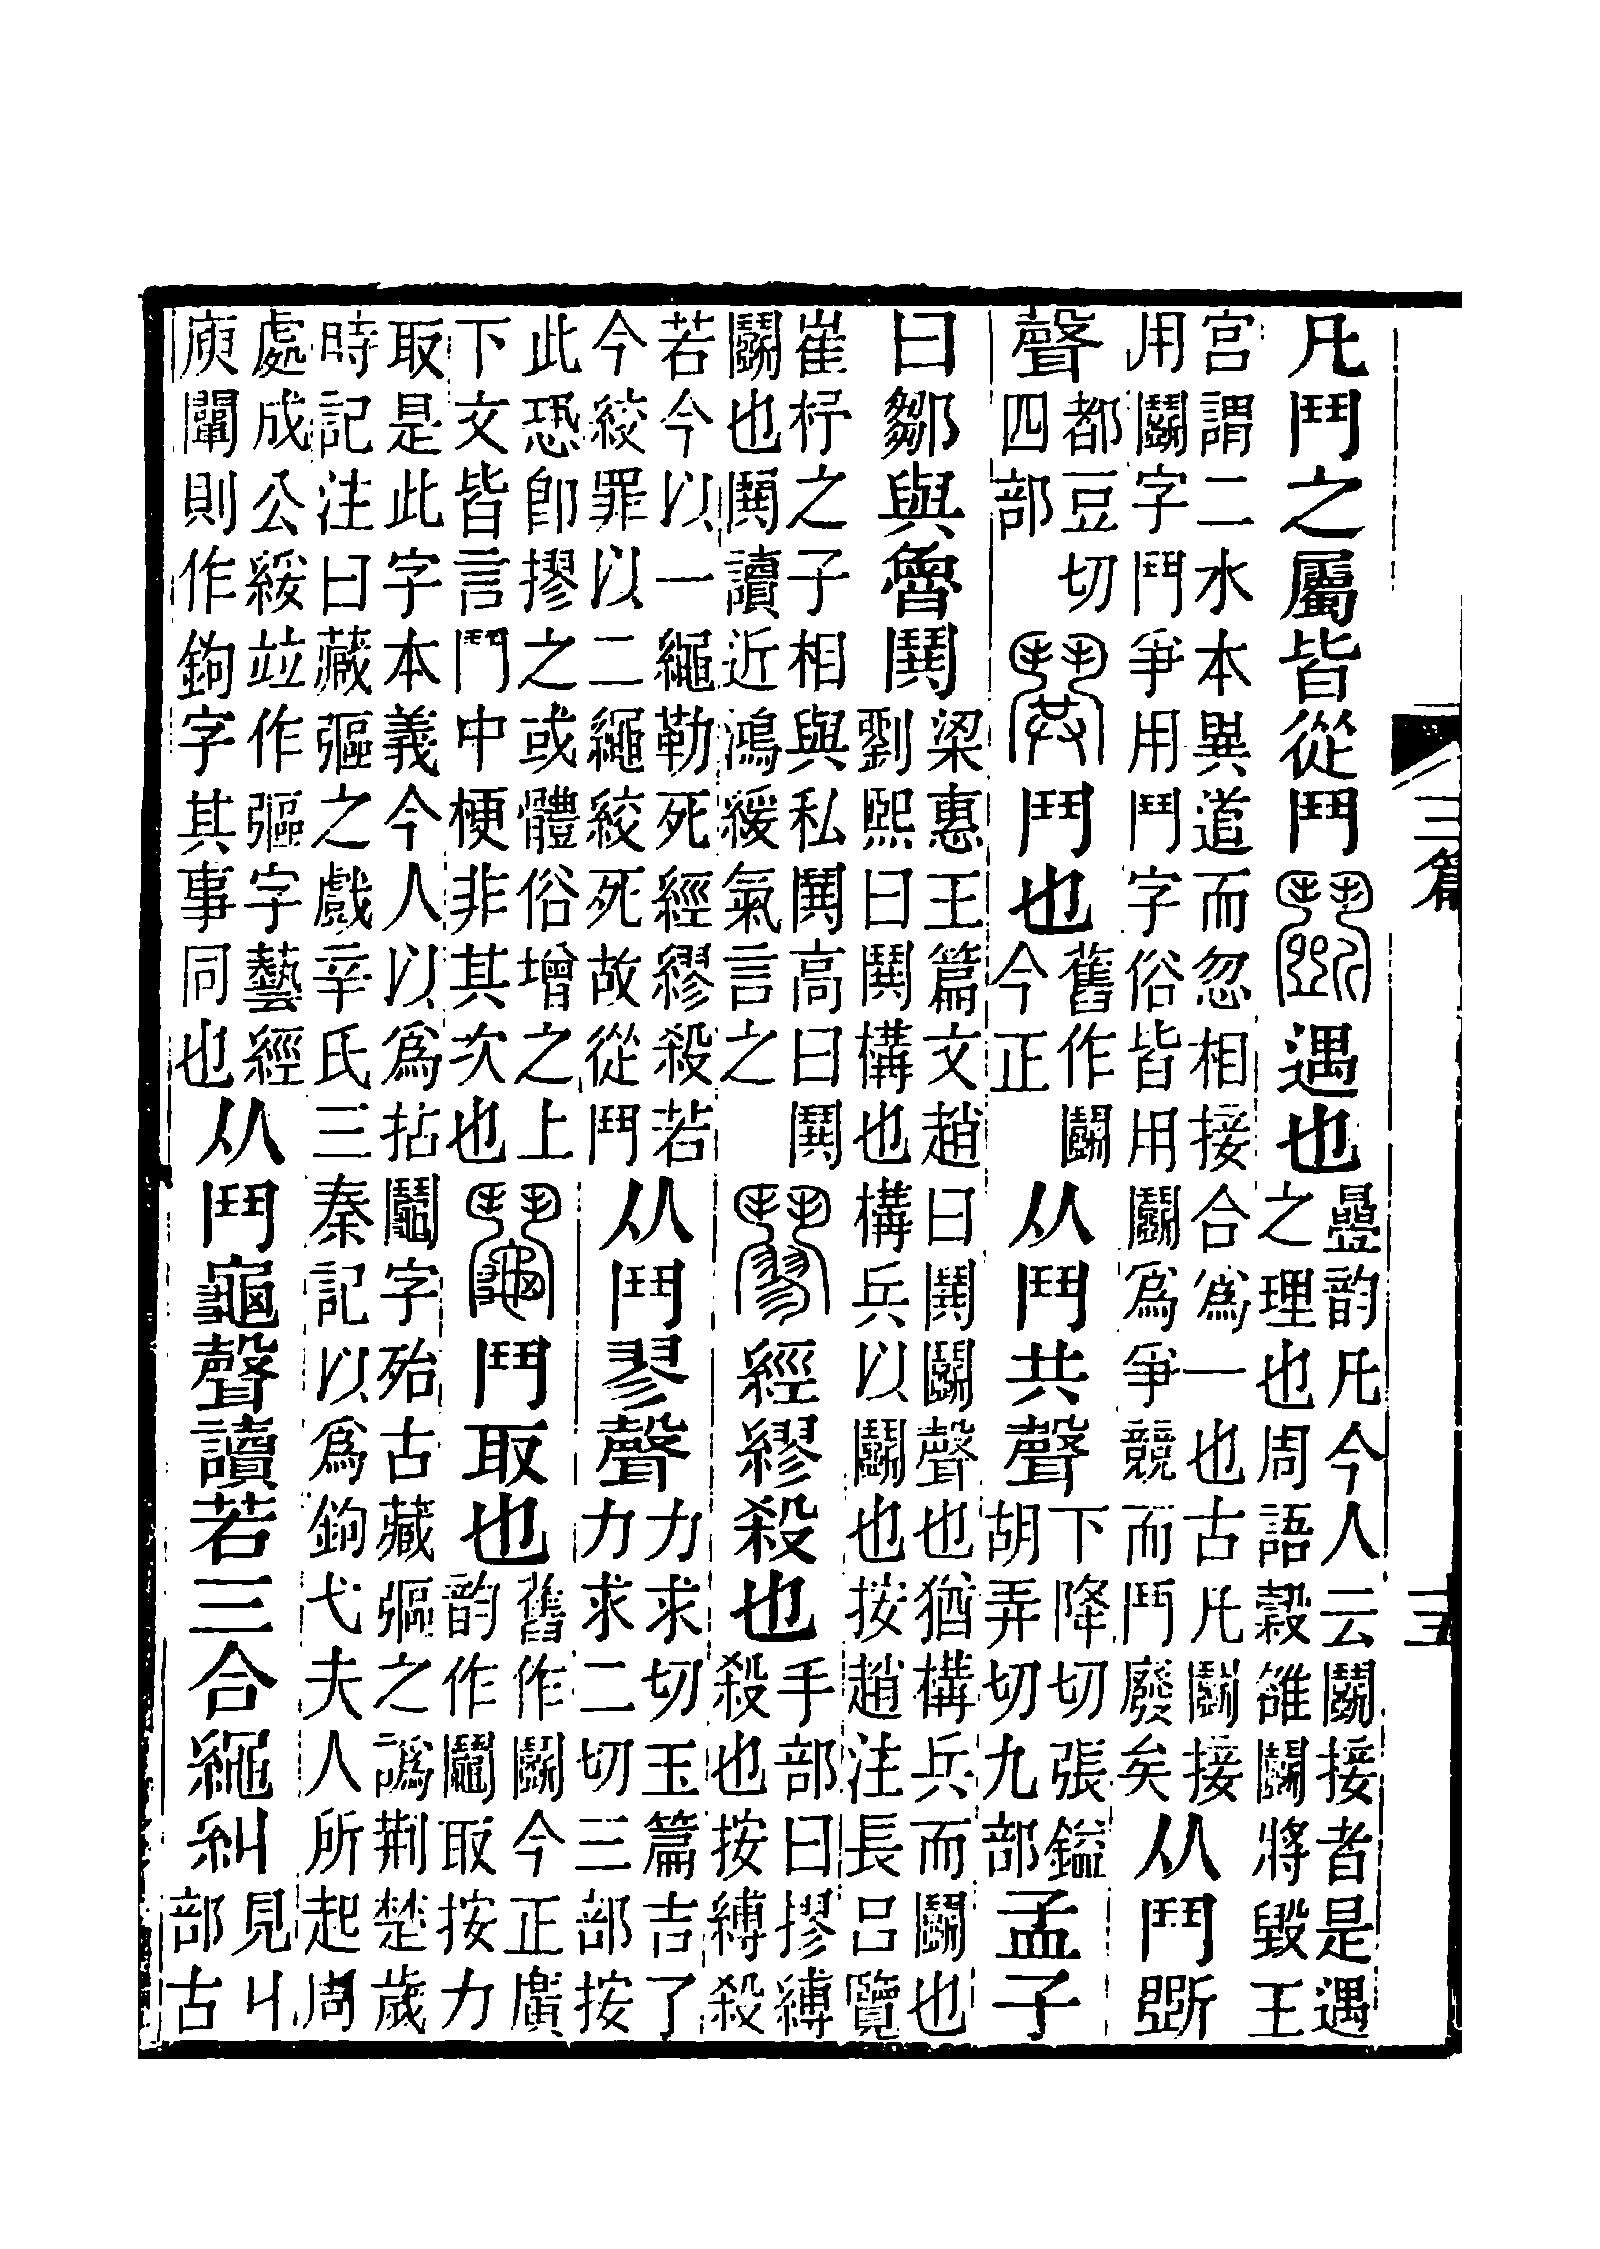 凡鬥之屬皆從鬥鬭遇也曡韵凡今人云鬭接者是遇
之理也周語穀雒鬭將毀王
宫謂二水本異道而忽相接合爲一也古凡鬭接
用鬭字鬥爭用鬥字俗皆用鬭爲爭競而鬥廢矣从鬥斲
聲都豆切四部鬨鬥也舊作鬭今正从鬥共聲下降切張鎰胡弄切九部孟子
曰鄒與魯鬨梁惠王篇文趙曰鬨鬭聲也猶構兵而鬭也
劉熙曰鬨構也構兵以鬭也按趙注長吕覽
崔杼之子相與私鬨高曰鬨
鬭也鬨讀近鴻緩氣言之䦧經繆殺也手部曰摎縛殺也按縛殺
若今以一繩勒死經繆殺若
今絞罪以二繩絞死故從鬥从鬥翏聲力求切玉篇吉了力求二切三部按
此恐卽摎之或體俗增之上
下文皆言鬥中梗非其次也鬮鬥取也舊作鬭今正廣韵作鬮取按力
取是此字本義今人以爲拈鬮字殆古藏彄之譌荆楚歲
時記注曰藏彄之戲辛氏三秦記以爲鉤弋夫人所起周
處成公綏竝作彄字藝經
庾闡則作鉤字其事同也从鬥龜聲讀若三合繩糾見丩部古
三篇